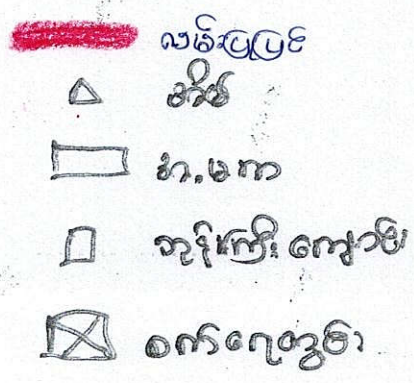 လမ်းပြုပြင်
အိမ်
စာ.မ.က
ဘုန်းကြီးကျောင်း
စက်ရေတွင်း